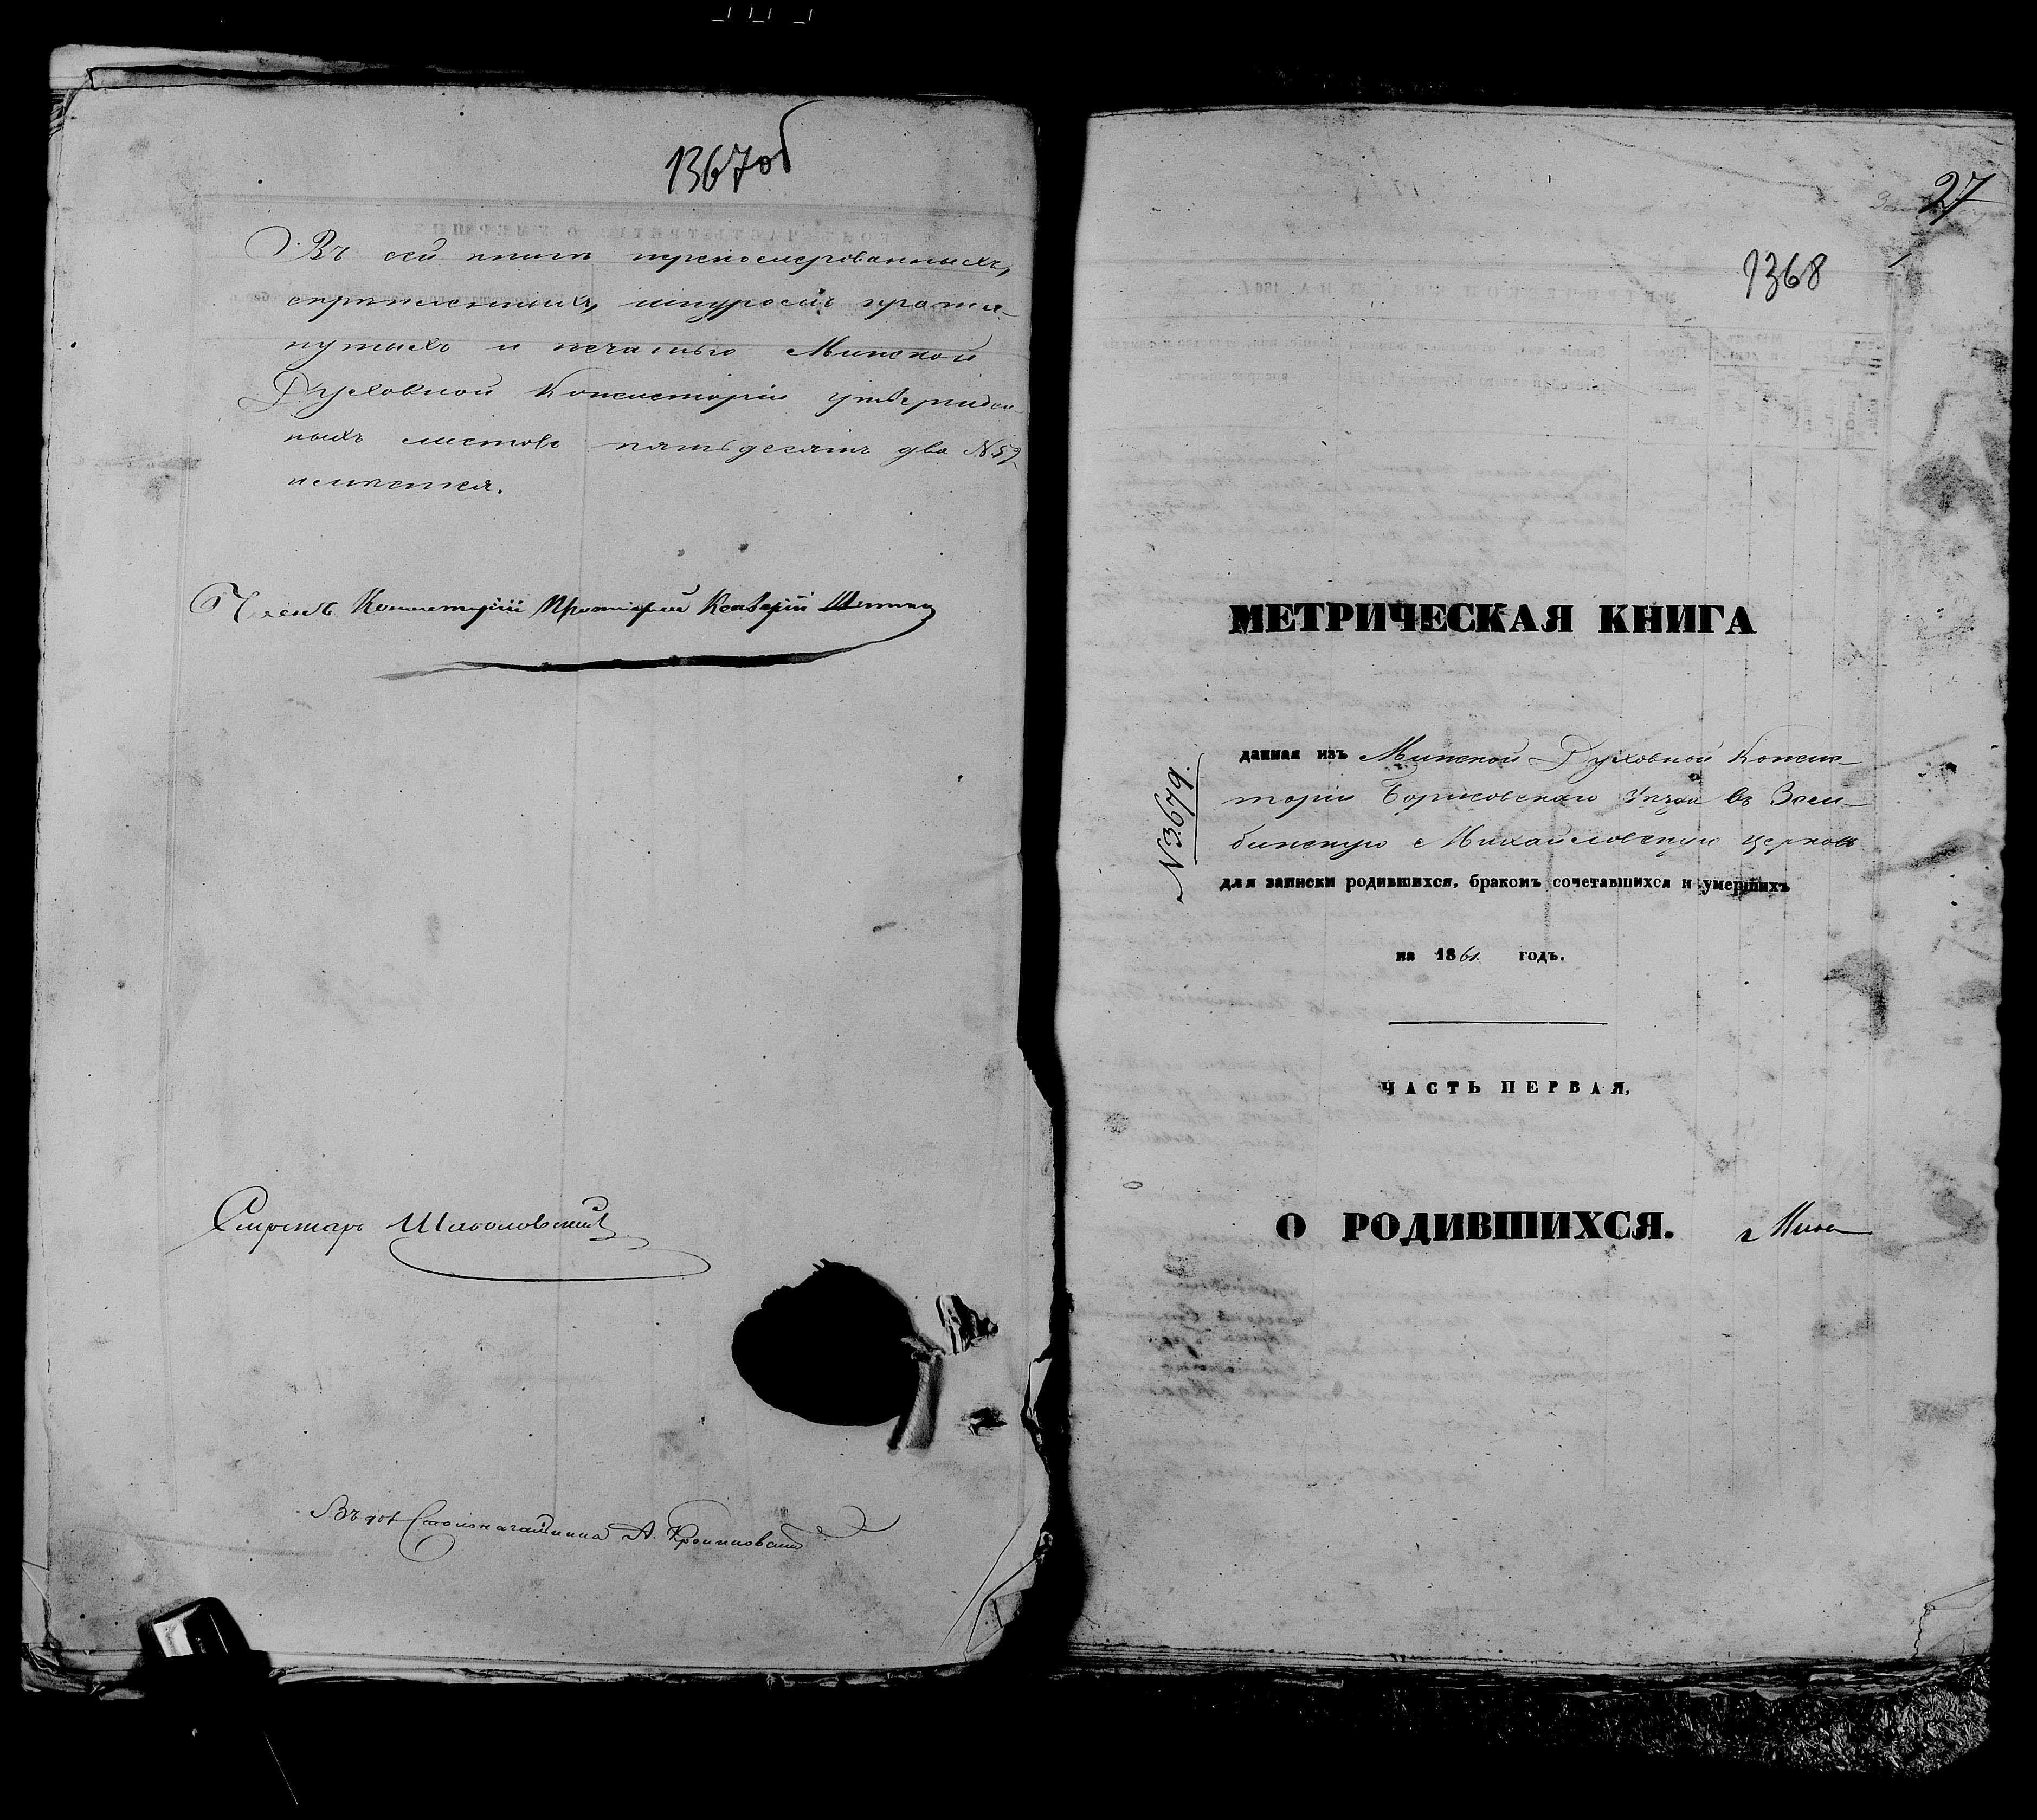 1367об
Въ сей книге перномерованныхъ,
скрепленныхъ, шнуромъ протя-
нутыхъ и печатью Минской
Духовной Консисторіи утвержден-
ныхъ листовъ пятьдесятъ два №52
имеется.
Членъ Консисторіи Протоіерей
Секретарь
Въ дол Столоначальника А.
27
1368
МЕТРИЧЕСКАЯ КНИГА
данная изъ Минской Духовной Консис-
торіи Борисовскаго уезда въ Зем-
бинскую Михайловскую церковь
№3679.
для записки родившихся, бракомъ сочетавшихся и умершихъ
на 1861 годъ.
ЧАСТЬ ПЕРВАЯ,
О РОДИВШИХСЯ.